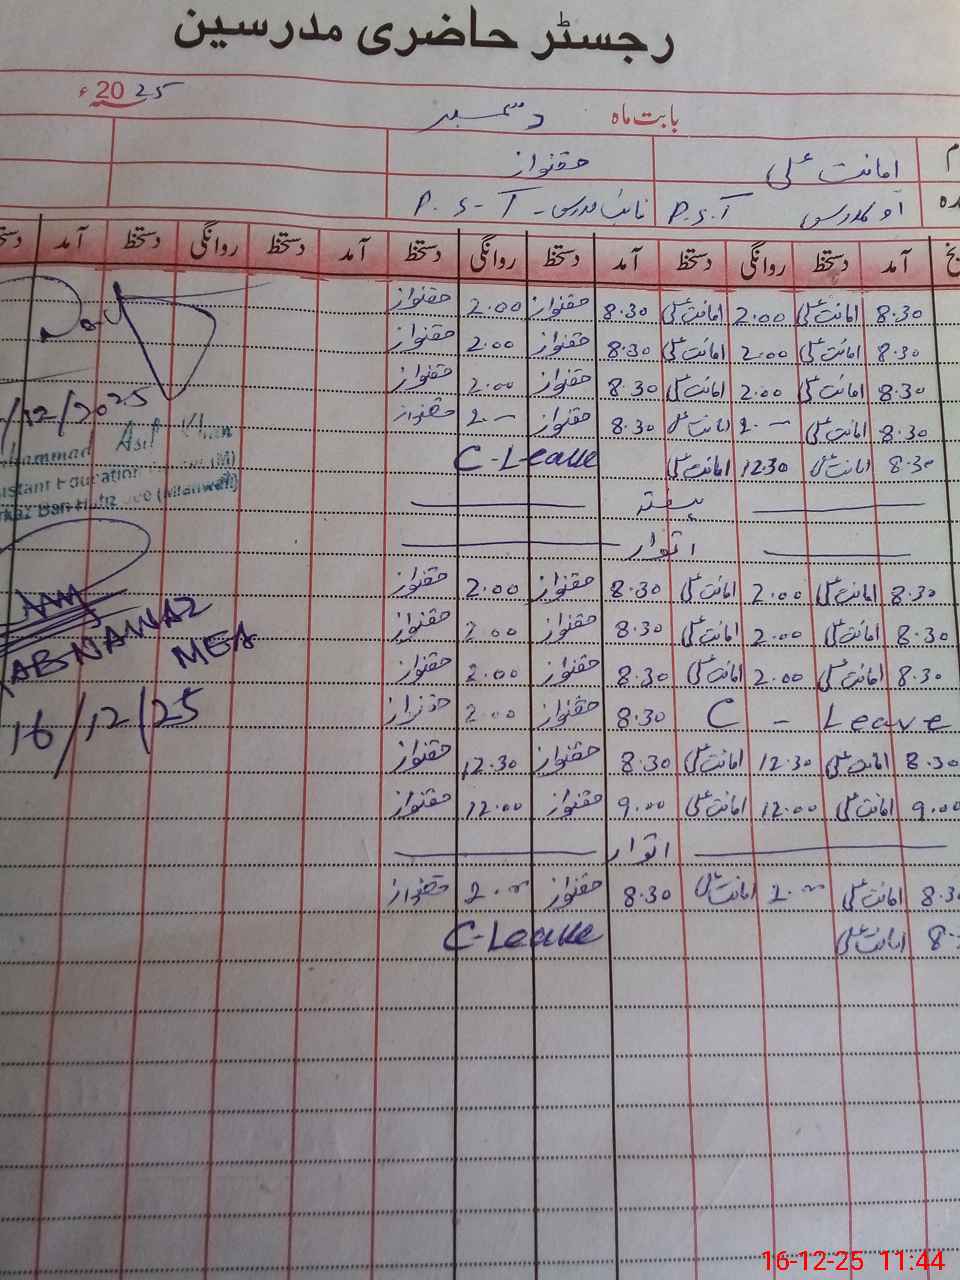 رجسٹر حاضری مدرسین
بابت ماہ دسمبر 2025ء
امانت علی حقنواز
P.S.T نائب مدرس P.S-T
آمد دستخط روانگی دستخط آمد دستخط روانگی دستخط آمد دستخط روانگی دستخط آمد
8.30 امانت علی 2.00 امانت علی 8.30 حقنواز 2.00 حقنواز
8.30 امانت علی 2.00 امانت علی 8.30 حقنواز 2.00 حقنواز
8.30 امانت علی 2.00 امانت علی 8.30 حقنواز 2.00 حقنواز
8.30 امانت علی 2.— امانت علی 8.30 حقنواز 2.— حقنواز
8.30 امانت علی 12.30 امانت علی C-Leave
ہفتہ
اتوار
8.30 امانت علی 2.00 امانت علی 8.30 حقنواز 2.00 حقنواز
8.30 امانت علی 2.00 امانت علی 8.30 حقنواز 2.00 حقنواز
8.30 امانت علی 2.00 امانت علی 8.30 حقنواز 2.00 حقنواز
C - Leave 8.30 حقنواز 2.00 حقنواز
8.30 امانت علی 12.30 امانت علی 8.30 حقنواز 12.30 حقنواز
9.00 امانت علی 12.00 امانت علی 9.00 حقنواز 12.00 حقنواز
اتوار
8.30 امانت علی 2.— امانت علی 8.30 حقنواز 2.— حقنواز
امانت علی C-Leave
/12/2025
Asif Khan
Education
(Mianwali)
NAWAZ
MEA
16/12/25
16-12-25 11:44